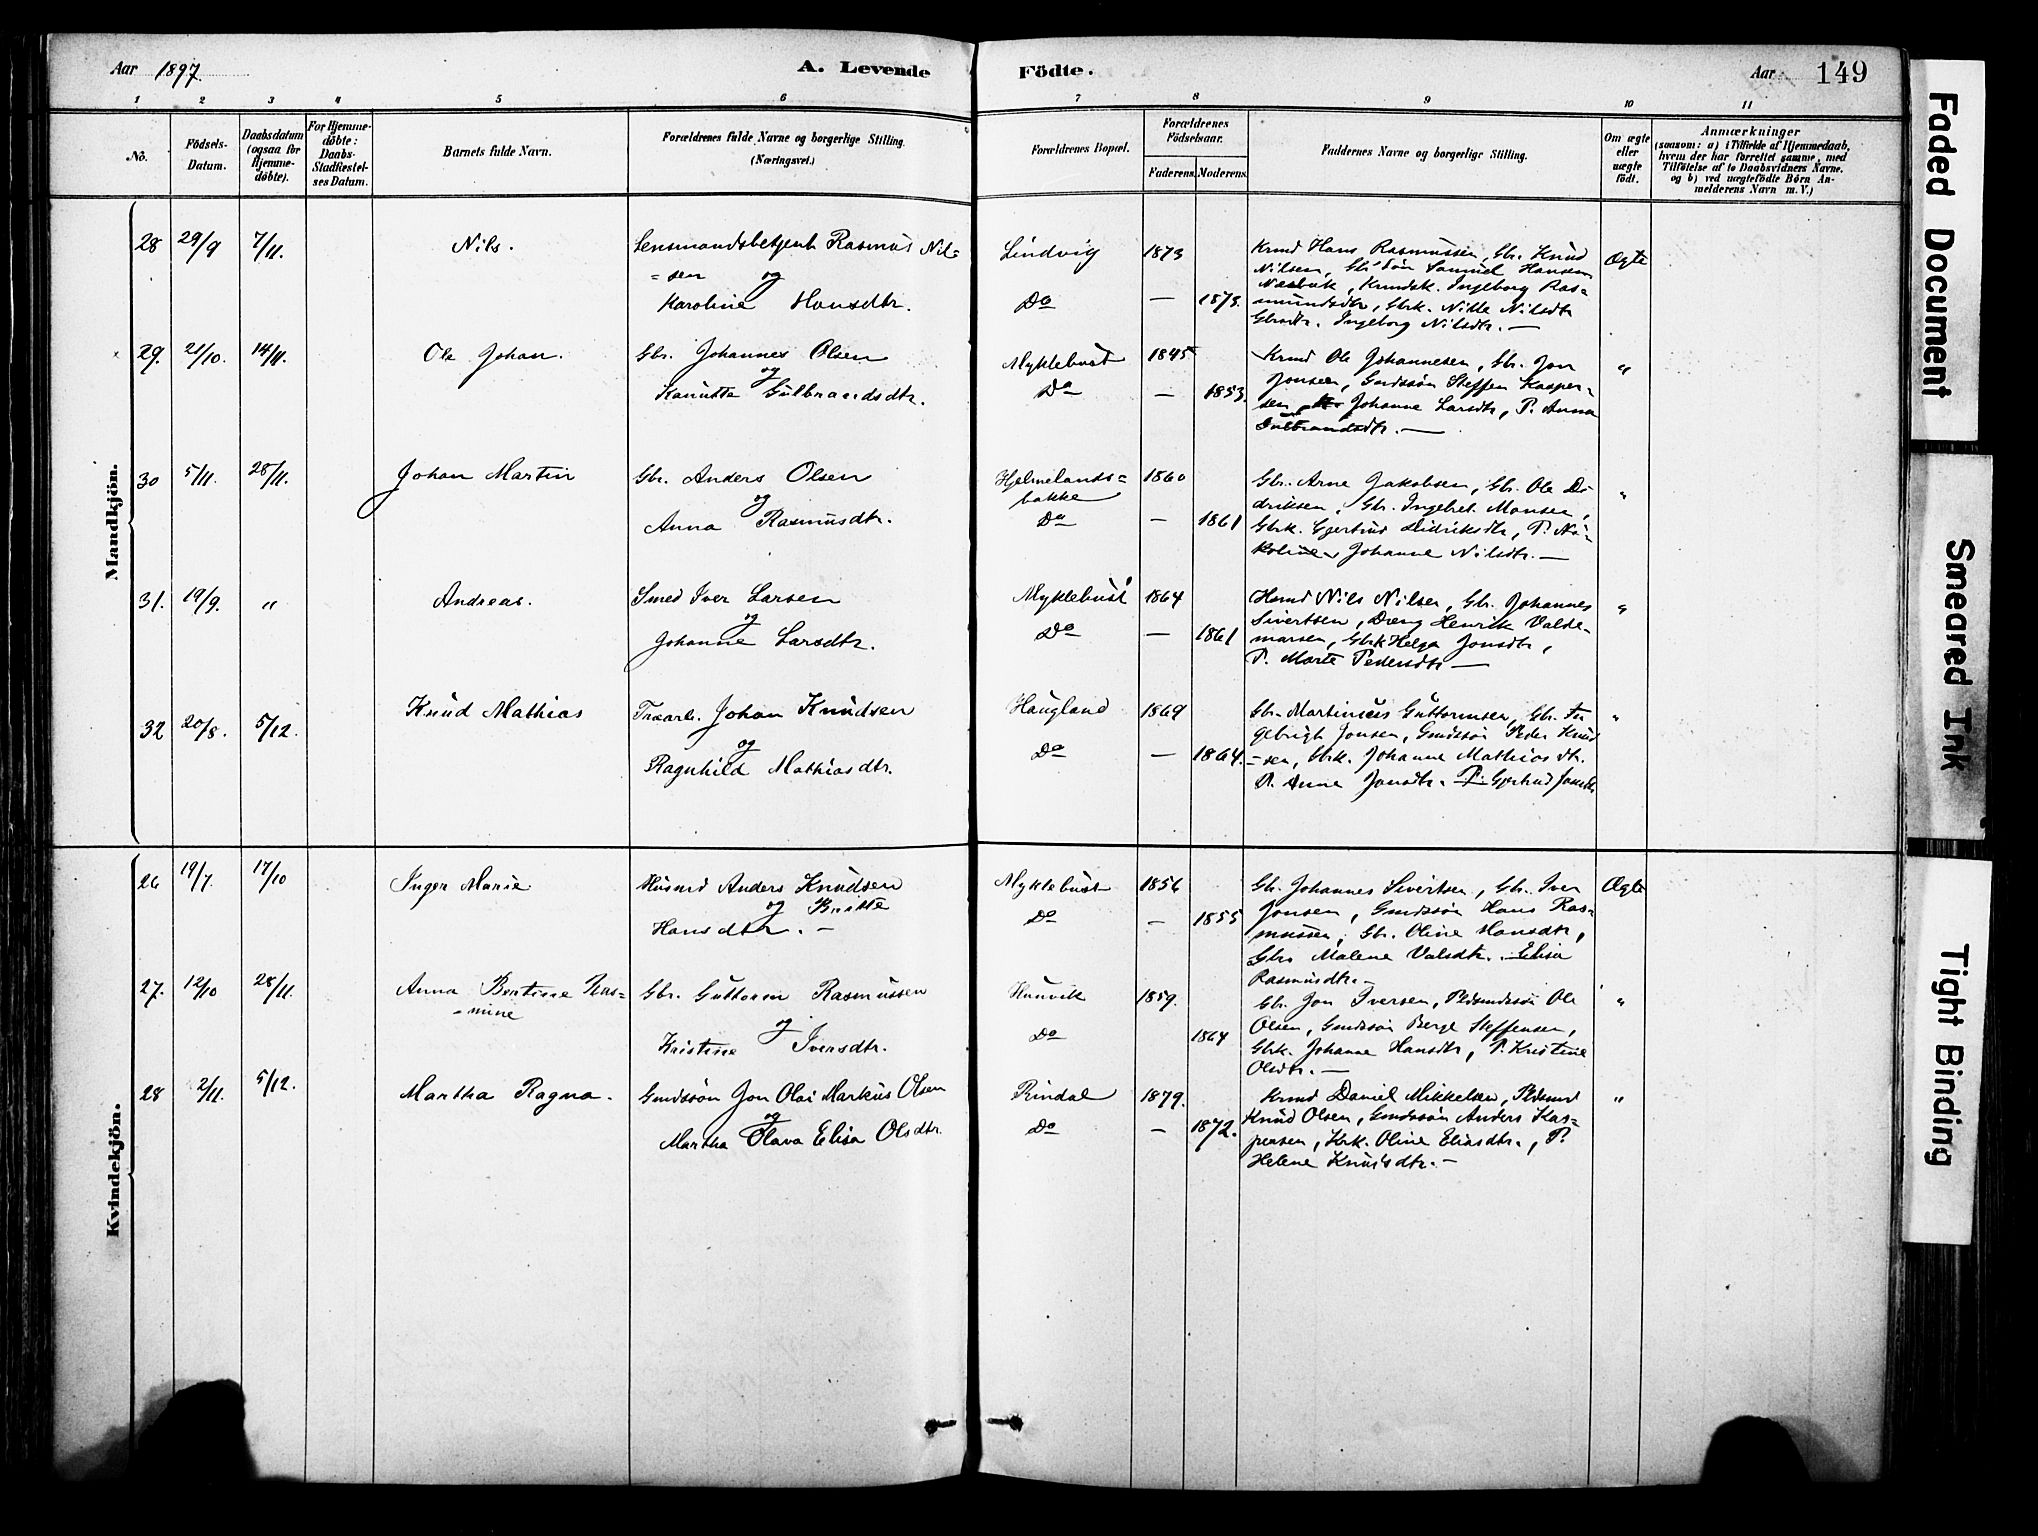 Aar 1897. A. Levende Födte. Aar 149
1 2 3 4 5 6 7 8 9 10 11
No. Födsels-Datum. Daabsdatum (ogsaa for Hjemmedöbte). For Hjemmedöbte: Daabs-Stadfæstelses Datum. Barnets fulde Navn. Forældrenes fulde Navne og borgerlige Stilling. (Næringsvei.) Forældrenes Bopæl. Forældrenes Födselsaar. Faderens. Moderens. Faddernes Navne og borgerlige Stilling. Om ægte eller uægte födt. Anmærkninger (saasom: a) i Tilfælde af Hjemmedaab, hvem der har forrettet samme, med Tilföielse af to Daabsvidners Navne, og b) ved uægtefödte Börn Anmelderens Navn m. V.)
Mandkjön.
28 29/9 7/11. Nils. Lensmandsbetjent Rasmus Nil= Lindvig 1873 Krmd Hans Rasmussen, Gbr. Knud Ægte
=sen og Nilsen, Gbr's Søn Samuel Hansen
Karoline Hansdtr. Do — 1873. Næsbak, Krmdsk. Ingeborg Ras=
mundsdtr, Gbrk. Nille Nilsdtr
Ingeborg Nilsdtr. —
29. 21/10. 14/11. Ole Johan. Gbr. Johannes Olsen Myklebust 1845 Krmd Ole Johannesen, Gbr. Jon "
og Jonsen, Gmdssøn Steffen Kasper=
Kanutte Gulbrandsdtr. Do — 1853. sen, Johanne Larsdtr, P. Anna
Gulbrandsdtr. —
30 5/11. 28/11. Johan Martin Gbr. Anders Olsen Hjelmelands= 1860 Gbr. Arne Jakobsen, Gbr. Ole Di "
og bakke driksen, Gbr. Ingebret Monsen,
Anna Rasmusdtr. Do — 1861 Gbrk. Gjertrud Didriksdtr, P. Ni=
koline, Johanne Nilsdtr. —
31. 19/9. " Andreas. Smed Iver Larsen Myklebust 1864 Husmd Nils Nilsen, Gbr. Johannes "
og Sivertsen, Dreng Henrik Valde=
Johanne Larsdtr. Do — 1861 marsen, Gbrk Helga Jonsdtr,
P. Marte Pedersdtr —
32 20/8. 5/12. Knud Mathias Træarb. Johan Knudsen Haugland 1869 Gbr. Martinus Guttormsen, Gbr. In "
og gebrigt Jonsen, Gmdssøn Peder Knud
Ragnhild Mathiasdtr. Do — 1864. =sen, Gbrk. Johanne Mathiasdtr.
P. Anne Jonsdtr. P. Gjertrud Jonsdtr
Kvindekjön.
26 19/7. 17/10 Inger Marie Husmd Anders Knudsen Myklebust 1856 Gbr. Johannes Sivertsen, Gbr. Iver Ægte
og Britte Do — 1855 Jonsen, Gmdssøn Hans Ras=
Hansdtr. — mussen, Gbr. Oline Hansdtr,
Gbr. Malene Valsdtr. Elisa
Rasmusdtr. —
27. 12/10 28/11. Anna Bertine Ras= Gbr. Guttorm Rasmussen Hunvik 1859. Gbr. Jon Iversen, Pldsmdssøn Ole "
=mine og Olsen, Gmdssøn Berge Steffensen,
Kristine Iversdtr. Do 1864 Gbrk. Johanne Hansdtr, P. Kristine
Olsdtr. —
28 2/11. 5/12. Martha Ragna. Gmdssøn Jon Olai Markus Olsen Rindal 1879. Krmd Daniel Mikkelsen, Pldsmd "
og Knud Olsen, Gmdssøn Anders Kas=
Martha Olava Elisa Olsdtr. Do — 1872. persen, Krk. Oline Eliasdtr., P.
Helene Knudsdtr. —
Faded Document
Smeared Ink
Tight Binding